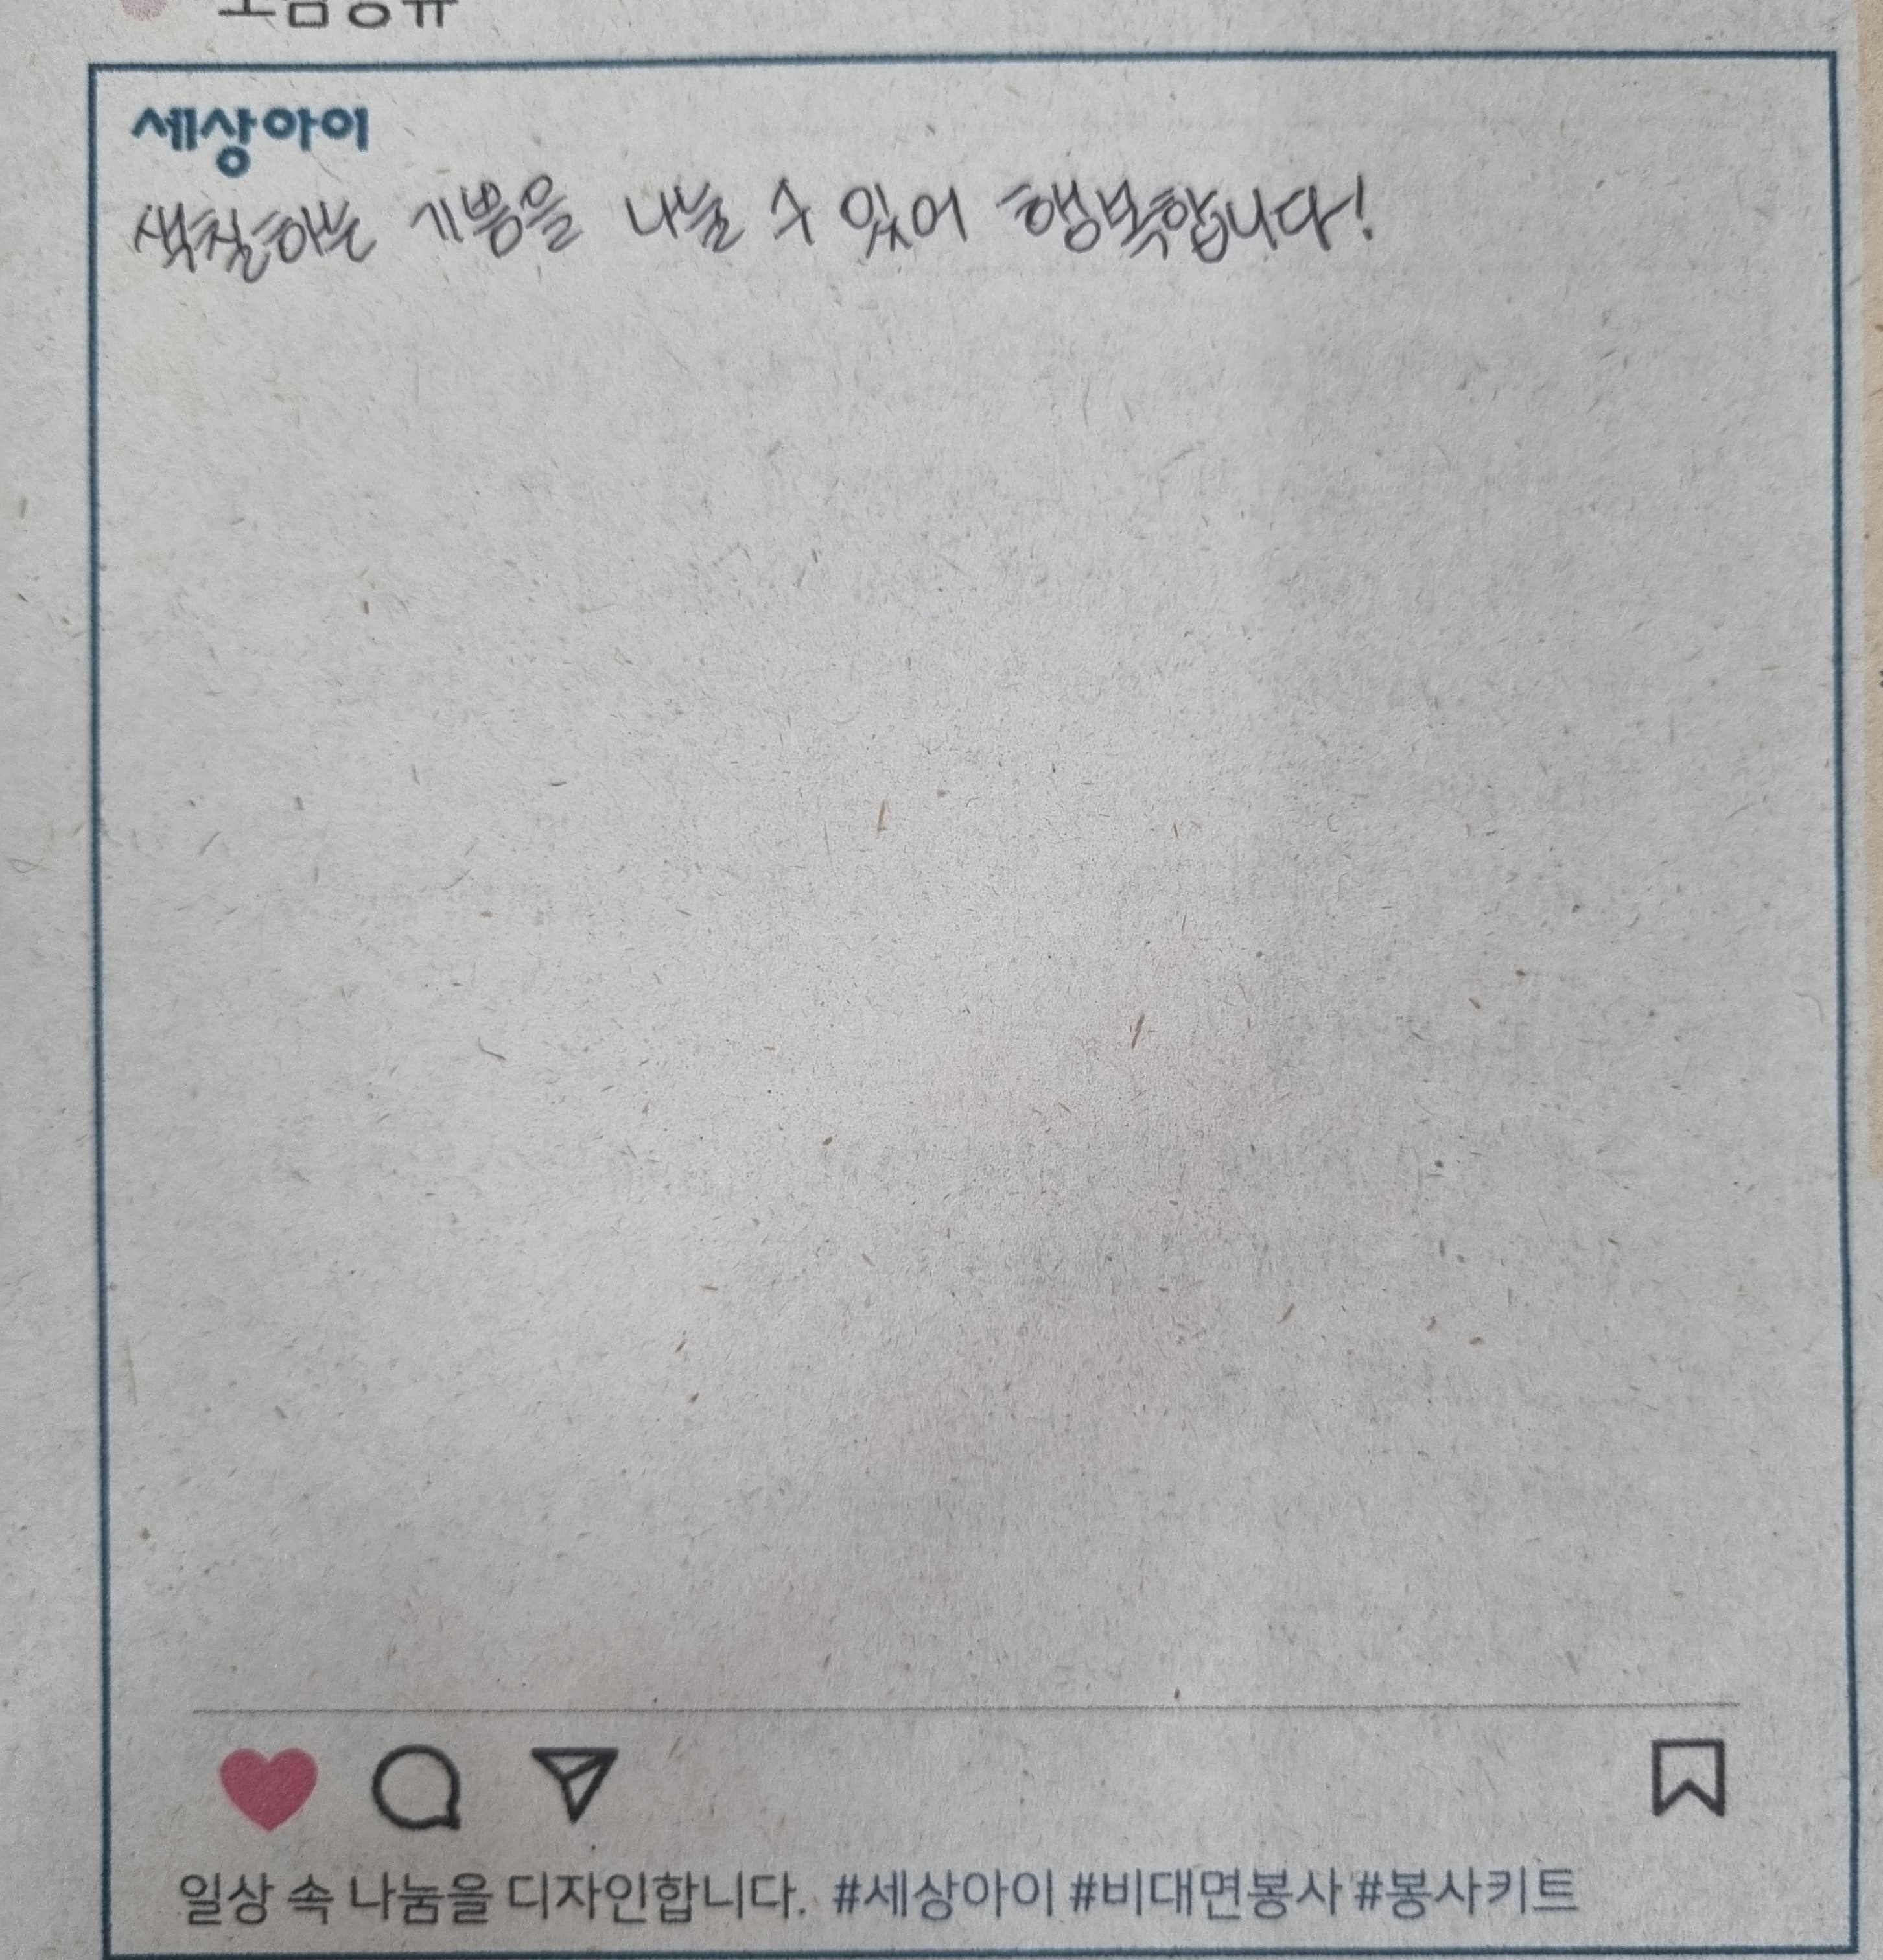 소감공유
세상아이
색칠하는 기쁨을 나눌 수 있어 행복합니다!
일상 속 나눔을 디자인합니다. #세상아이 #비대면봉사 #봉사키트